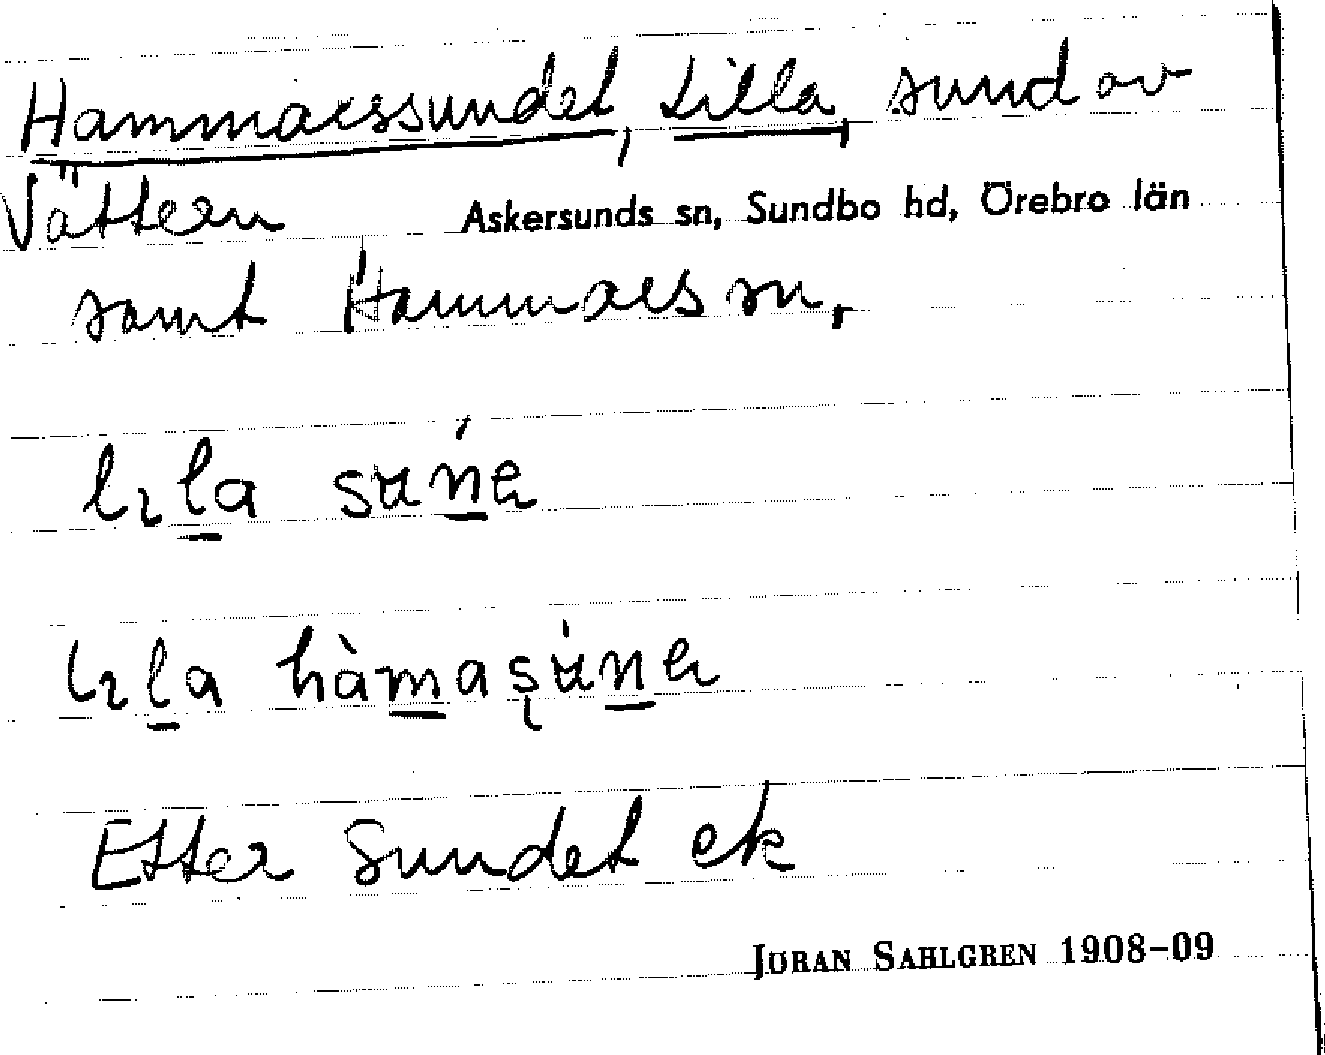 Hammarssundet, Lilla, sund av
Vättern Askersunds sn, Sundbo hd, Örebro län
samt Hammars sn,
lɩla sʉ́nɐ
lɩla hàmaʂʉ̀nɐ
Efter Sundet ek
JÖRAN SAHLGREN 1908–09